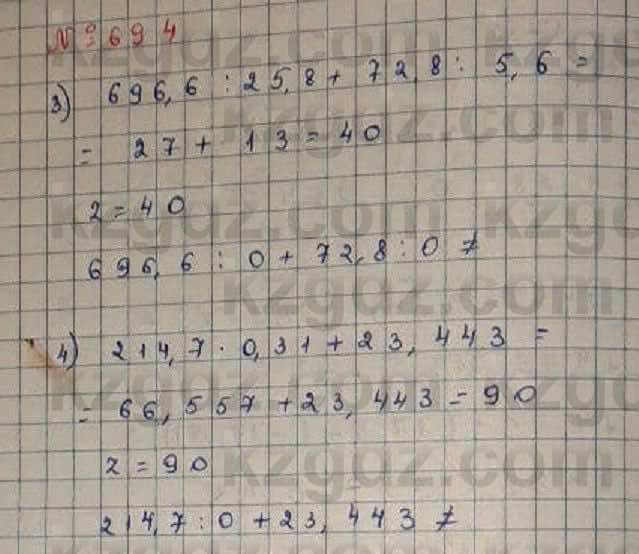 № 694
3) 696,6 : 25,8 + 72,8 : 5,6 =
= 27 + 13 = 40
z = 40
696,6 : 0 + 72,8 : 0 ≠
4) 214,7 · 0,31 + 23,443 =
= 66,557 + 23,443 = 90
z = 90
214,7 : 0 + 23,443 ≠
kzgdz.com